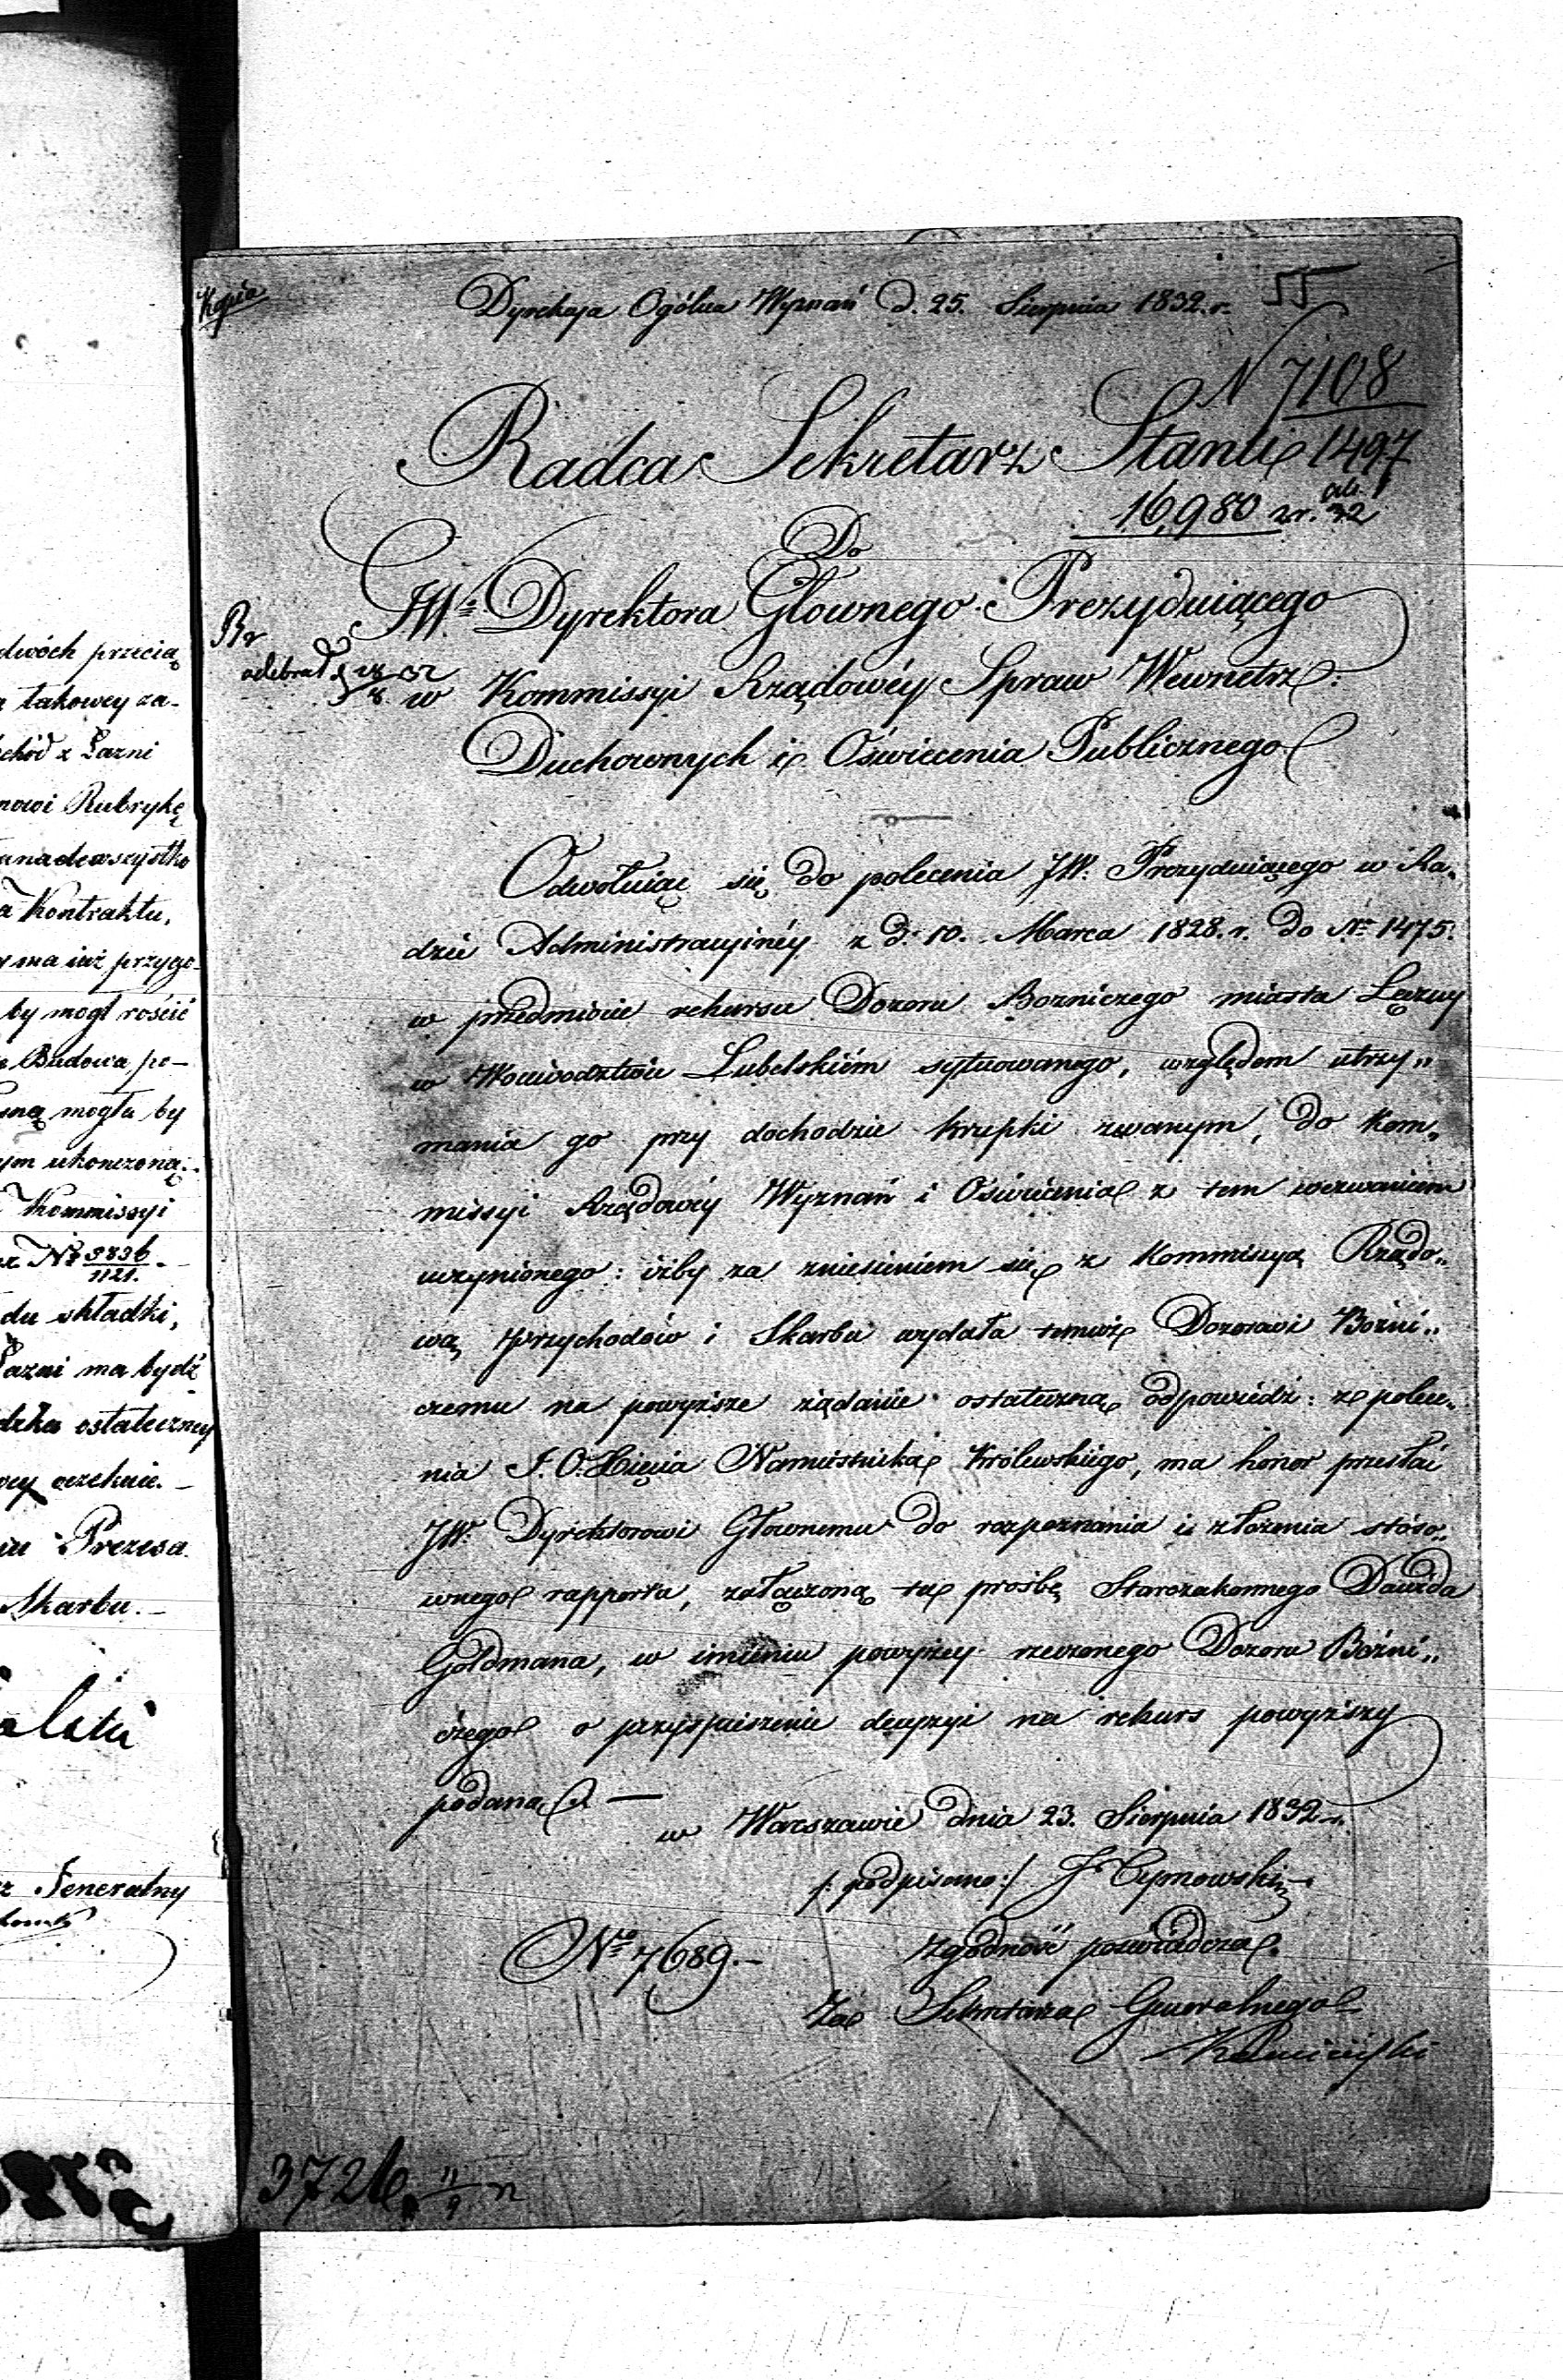 dwóch przecią
takowey za-
chód z Łazni
nowi Rubrykę
nadewszystko
Kontraktu,
ma iuż przygo-
by mogł rościć
Budowa po-
mogła by
ukonczoną.
Kommissyi
Nr 3836
1121.
du składki,
Łazni ma bydź
ostateczney
oczekuie.
Prezesa
Skarbu.
Generalny
Kopia
Dyrekcya Ogólna Wyznań d. 25. Sierpnia 1832. r.
55
N 7108
1497
Radca Sekretarz Stanu
16,980 32
Do
JWo Dyrektora Głownego Prezyduiącego
w Kommissyi Rządowéy Spraw Wewnetrz:
Duchownych i Oświecenia Publicznego
odebrał d 28/8 32
Odwołuiąc się do polecenia JW: Prezyduiącego w Ra„
dzie Administracyinéy z d: 10. Marca 1828. r. do No 1475.
w przedmiocie rekursu Dozoru Bozniczego miasta Łęczny
w Woiewodztwie Lubelskiém sytuowanego, względem utrzy„
mania go przy dochodzie krupki zwanym, do Kom„
missyi Rządowéy Wyznań i Oświecenia z tem wezwaniem
uczynionego: iżby za zniesieniem się z Kommissyą Rządo„
wą Przychodów i Skarbu wydała temuż Dozorowi Bożni„
czemu na powyższe żądanie ostateczną odpowiedź: z polece„
nia J. O. Xięcia Namiestnika Królewskiego, ma honor przesłać
JW. Dyrektorowi Głownemu do rozpoznania i złożenia stóso„
wnego rapportu, załączoną tu prosbę Starozakonnego Dawida
Goldmana, w imieniu powyżey rzeczonego Dozoru Bożni„
czego o przyspieszenie decyzyi na rekurs powyższy
podaną. —
w Warszawie dnia 23. Sierpnia 1832 r.
/: podpisano :/ J Tymowski
No 7689.— Zgodność poświadcza
Za Sekretarza Generalnego
3726. 11/9